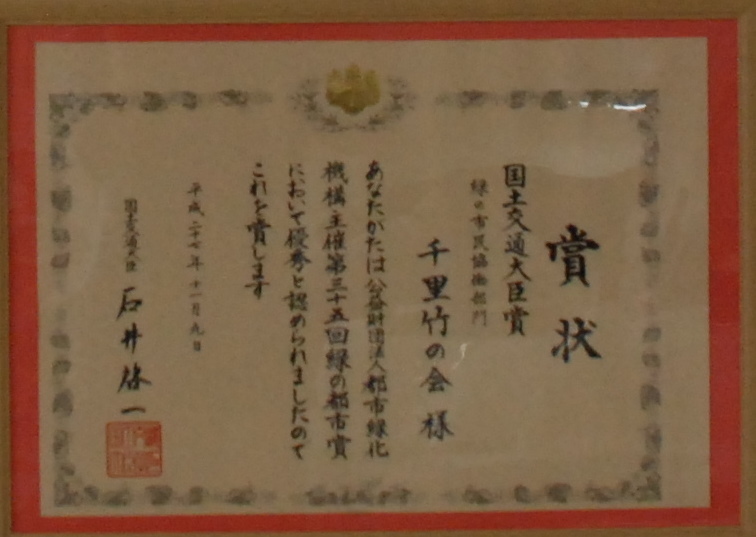 賞状
国土交通大臣賞
緑の市民協働部門
千里竹の会 様
あなたがたは公益財団法人都市緑化
機構主催第三十五回緑の都市賞
において優秀と認められましたので
これを賞します
平成二十七年十一月九日
国土交通大臣 石井啓一